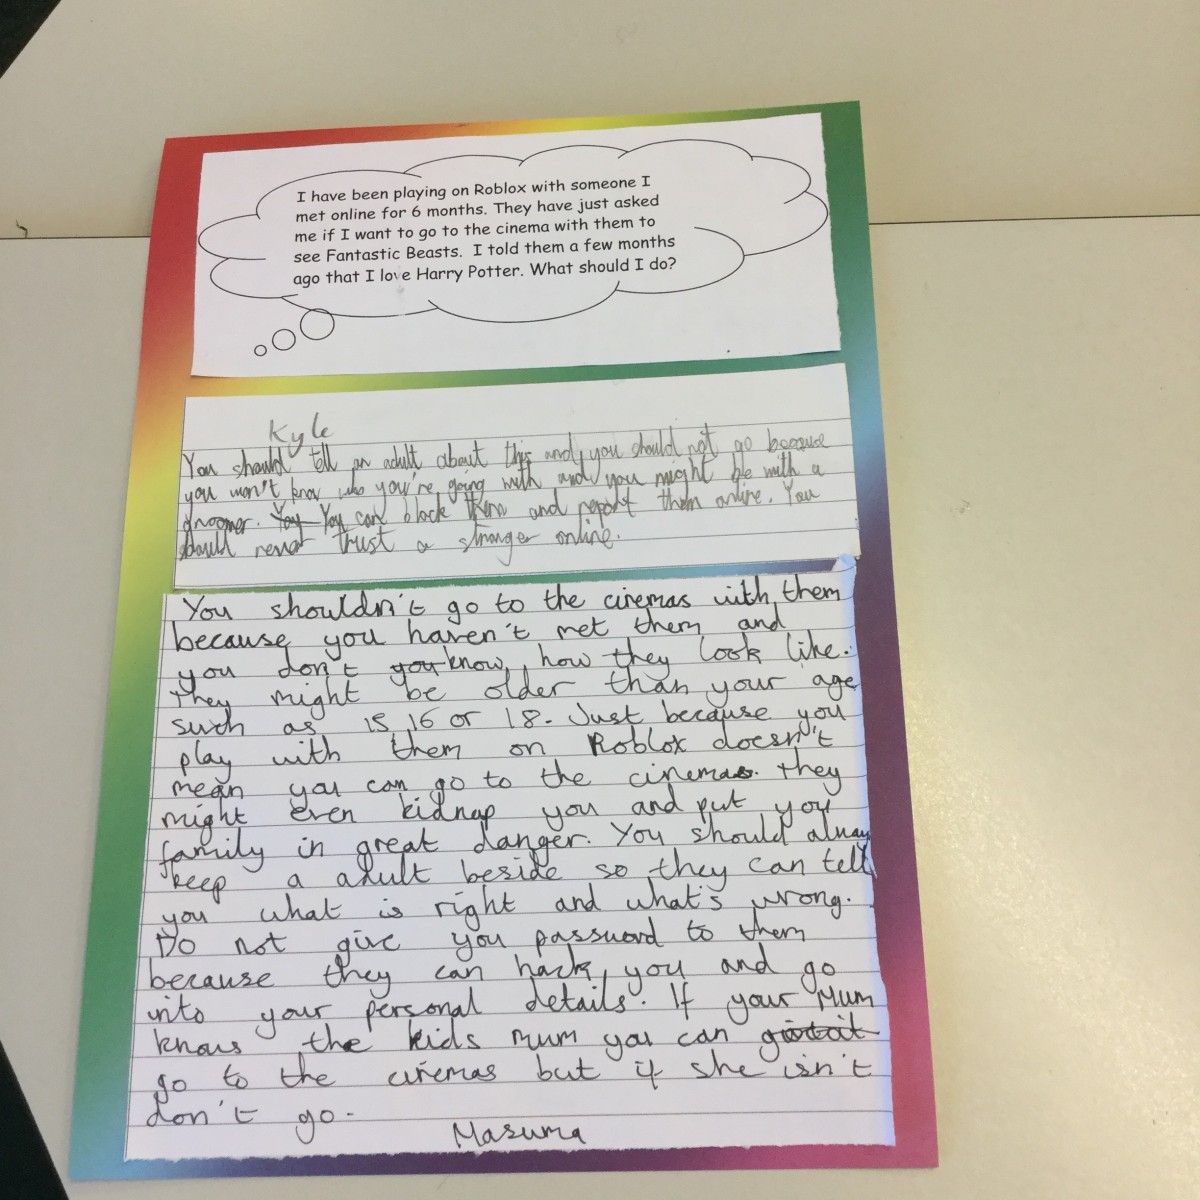 I have been playing on Roblox with someone I
met online for 6 months. They have just asked
me if I want to go to the cinema with them to
see Fantastic Beasts. I told them a few months
ago that I love Harry Potter. What should I do?
Kyle
You should tell an adult about this and you should not go because
you won't know who you're going with and you might be with a
groomer. You You can block them and report them online. You
should never trust a stranger online.
You shouldn't go to the cinemas with them
because you haven't met them and
you don't you know, how they look like.
they might be older than your age
such as 15 16 or 18. Just because you
play with them on Roblox doesn't
mean you can go to the cinemas. they
might even kidnap you and put you
family in great danger. You should alway
keep a adult beside so they can tell
you what is right and what's wrong.
Do not give you password to them
because they can hack you and go
into your personal details. If your Mum
knows the kids mum you can
go to the cinemas but if she isn't
don't go.
Masuma